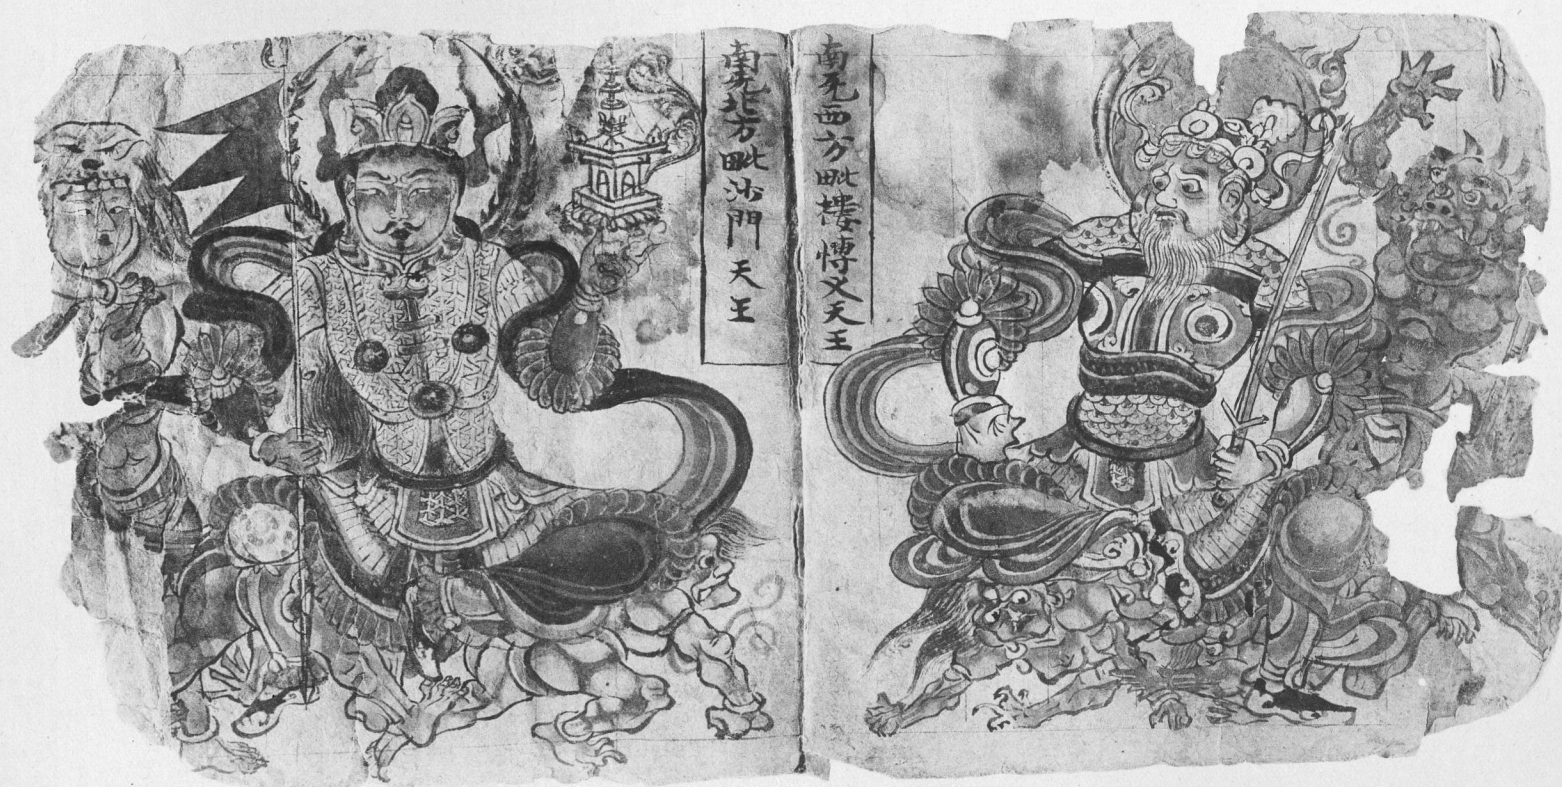 南无西方毗樓愽叉天王
南无北方毗沙門天王